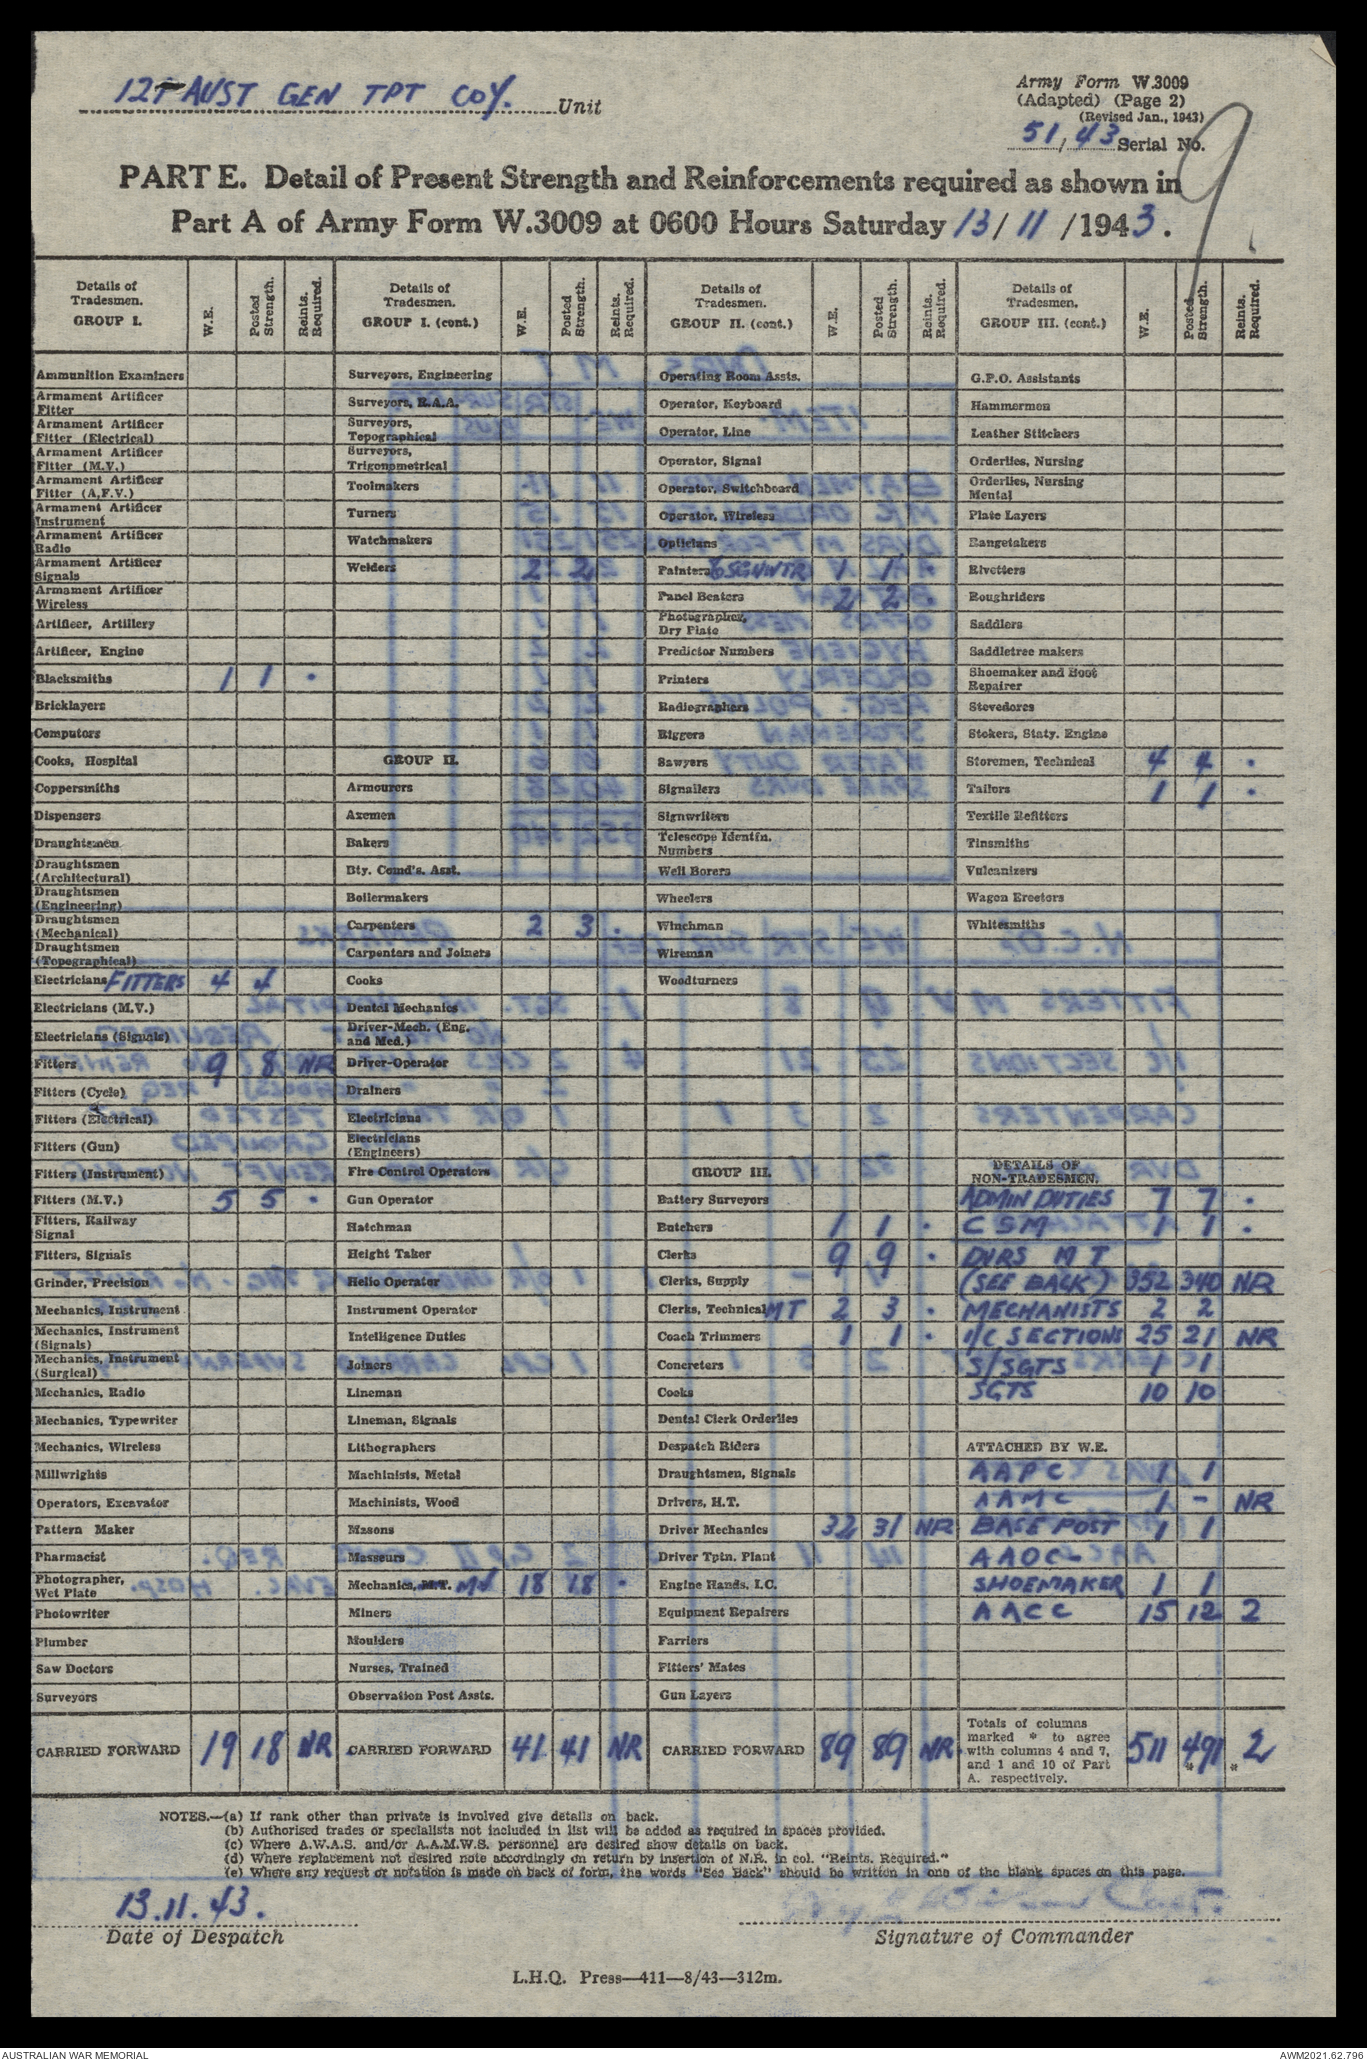 AUST GEN TPT COY. Unit
Army Form W.3009
(Adapted) (Page 2)
(Revised Jan., 1943)
51/43 Serial No.
9.
PART E. Detail of Present Strength and Reinforcements required as shown in
Part A of Army Form W.3009 at 0600 Hours Saturday 13/11/1943.
Details of Tradesmen. GROUP I.
W.E.
Posted Strength.
Reints. Required.
Ammunition Examiners
Armament Artificer Fitter
Armament Artificer Fitter (Electrical)
Armament Artificer Fitter (M.V.)
Armament Artificer Fitter (A.F.V.)
Armament Artificer Instrument
Armament Artificer Radio
Armament Artificer Signals
Armament Artificer Wireless
Artificer, Artillery
Artificer, Engine
Blacksmiths 1 1 .
Bricklayers
Computors
Cooks, Hospital
Coppersmiths
Dispensers
Draughtsmen
Draughtsmen (Architectural)
Draughtsmen (Engineering)
Draughtsmen (Mechanical)
Draughtsmen (Topographical)
Electricians FITTERS 4 4
Electricians (M.V.)
Electricians (Signals)
Fitters 9 8 NR
Fitters (Cycle)
Fitters (Electrical)
Fitters (Gun)
Fitters (Instrument)
Fitters (M.V.) 5 5 .
Fitters, Railway Signal
Fitters, Signals
Grinder, Precision
Mechanics, Instrument
Mechanics, Instrument (Signals)
Mechanics, Instrument (Surgical)
Mechanics, Radio
Mechanics, Typewriter
Mechanics, Wireless
Millwrights
Operators, Excavator
Pattern Maker
Pharmacist
Photographer, Wet Plate
Photowriter
Plumber
Saw Doctors
Surveyors
CARRIED FORWARD 19 18 NR
Details of Tradesmen. GROUP I. (cont.)
W.E.
Posted Strength.
Reints. Required.
Surveyors, Engineering
Surveyors, R.A.A.
Surveyors, Topographical
Surveyors, Trigonometrical
Toolmakers
Turners
Watchmakers
Welders 2 2
GROUP II.
Armourers
Axemen
Bakers
Bty. Comd's. Asst.
Boilermakers
Carpenters 2 3 .
Carpenters and Joiners
Cooks
Dental Mechanics
Driver-Mech. (Eng. and Med.)
Driver-Operator
Drainers
Electricians
Electricians (Engineers)
Fire Control Operators
Gun Operator
Hatchman
Height Taker
Helio Operator
Instrument Operator
Intelligence Duties
Joiners
Lineman
Lineman, Signals
Lithographers
Machinists, Metal
Machinists, Wood
Masons
Masseurs
Mechanics, M.T. MV 18 18 .
Miners
Moulders
Nurses, Trained
Observation Post Assts.
CARRIED FORWARD 41 41 NR
Details of Tradesmen. GROUP II. (cont.)
W.E.
Posted Strength.
Reints. Required.
Operating Room Assts.
Operator, Keyboard
Operator, Line
Operator, Signal
Operator, Switchboard
Operator, Wireless
Opticians
Painters & SGNWTR 1 1 .
Panel Beaters 2 2 .
Photographer, Dry Plate
Predictor Numbers
Printers
Radiographers
Riggers
Sawyers
Signallers
Signwriters
Telescope Identfn. Numbers
Well Borers
Wheelers
Winchman
Wireman
Woodturners
GROUP III.
Battery Surveyors
Butchers 1 1 .
Clerks 9 9 .
Clerks, Supply
Clerks, Technical MT 2 3 .
Coach Trimmers 1 1 .
Concreters
Cooks
Dental Clerk Orderlies
Despatch Riders
Draughtsmen, Signals
Drivers, H.T.
Driver Mechanics 32 31 NR
Driver Tptn. Plant
Engine Hands, I.C.
Equipment Repairers
Farriers
Fitters' Mates
Gun Layers
CARRIED FORWARD 89 89 NR.
Details of Tradesmen. GROUP III. (cont.)
W.E.
Posted Strength.
Reints. Required.
G.P.O. Assistants
Hammermen
Leather Stitchers
Orderlies, Nursing
Orderlies, Nursing Mental
Plate Layers
Rangetakers
Rivetters
Roughriders
Saddlers
Saddletree makers
Shoemaker and Boot Repairer
Stevedores
Stokers, Staty. Engine
Storemen, Technical 4 4 .
Tailors 1 1 .
Textile Refitters
Tinsmiths
Vulcanizers
Wagon Erectors
Whitesmiths
DETAILS OF NON-TRADESMEN.
ADMIN DUTIES 7 7 .
CSM 1 1 .
DVRS M T
(SEE BACK) 352 340 NR
MECHANISTS 2 2
I/C SECTIONS 25 21 NR
S/SGTS 1 1
SGTS 10 10
ATTACHED BY W.E.
AAPC 1 1
AAMC 1 - NR
BASE POST 1 1
AAOC-
SHOEMAKER 1 1
AACC 15 12 2
Totals of columns marked * to agree with columns 4 and 7, and 1 and 10 of Part A. respectively. 511 *491 * 2
NOTES.—(a) If rank other than private is involved give details on back.
(b) Authorised trades or specialists not included in list will be added as required in spaces provided.
(c) Where A.W.A.S. and/or A.A.M.W.S. personnel are desired show details on back.
(d) Where replacement not desired note accordingly on return by insertion of N.R. in col. "Reints. Required."
(e) Where any request or notation is made on back of form, the words "See Back" should be written in one of the blank spaces on this page.
13.11.43.
Date of Despatch
Signature of Commander
L.H.Q. Press—411—8/43—312m.
AUSTRALIAN WAR MEMORIAL
AWM2021.62.796